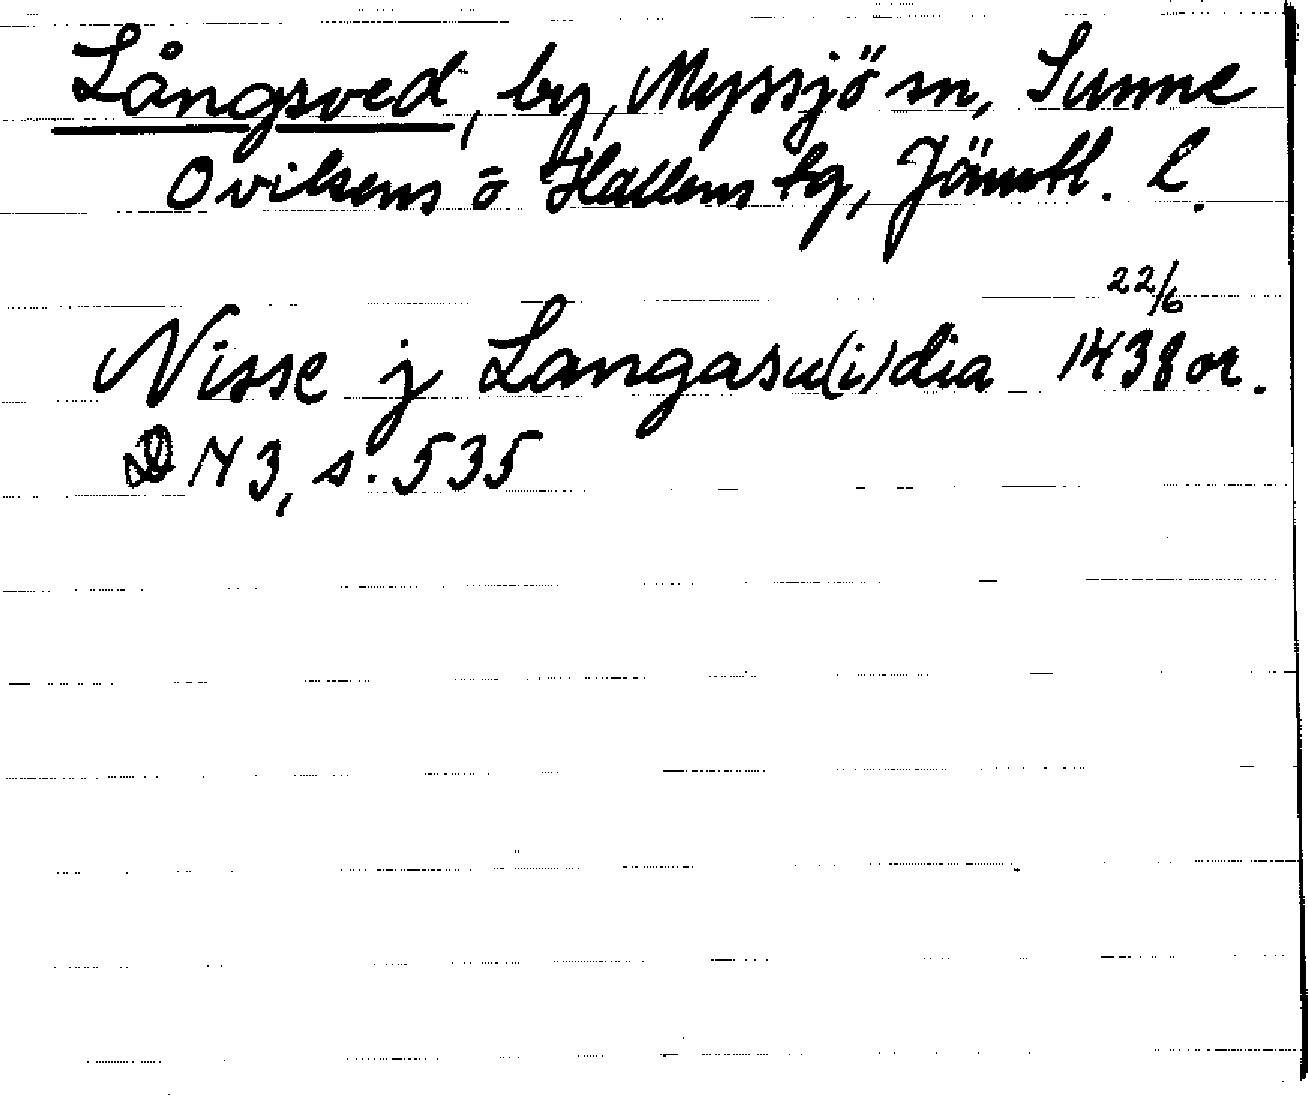 Långsved, by, Myssjö sn, Sunne
Ovikens o Hallens tg, Jämtl. l.
22/6
Nisse j Langasu(i)dia 1438 or.
DN 3, s. 535